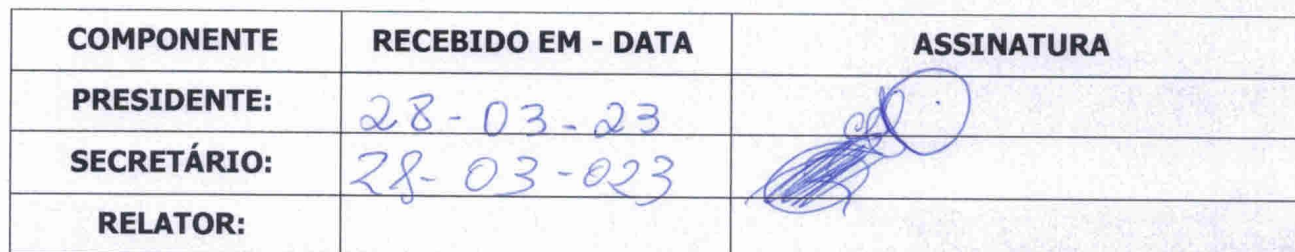 COMPONENTE RECEBIDO EM - DATA ASSINATURA
PRESIDENTE: 28-03-23
SECRETÁRIO: 28-03-023
RELATOR: